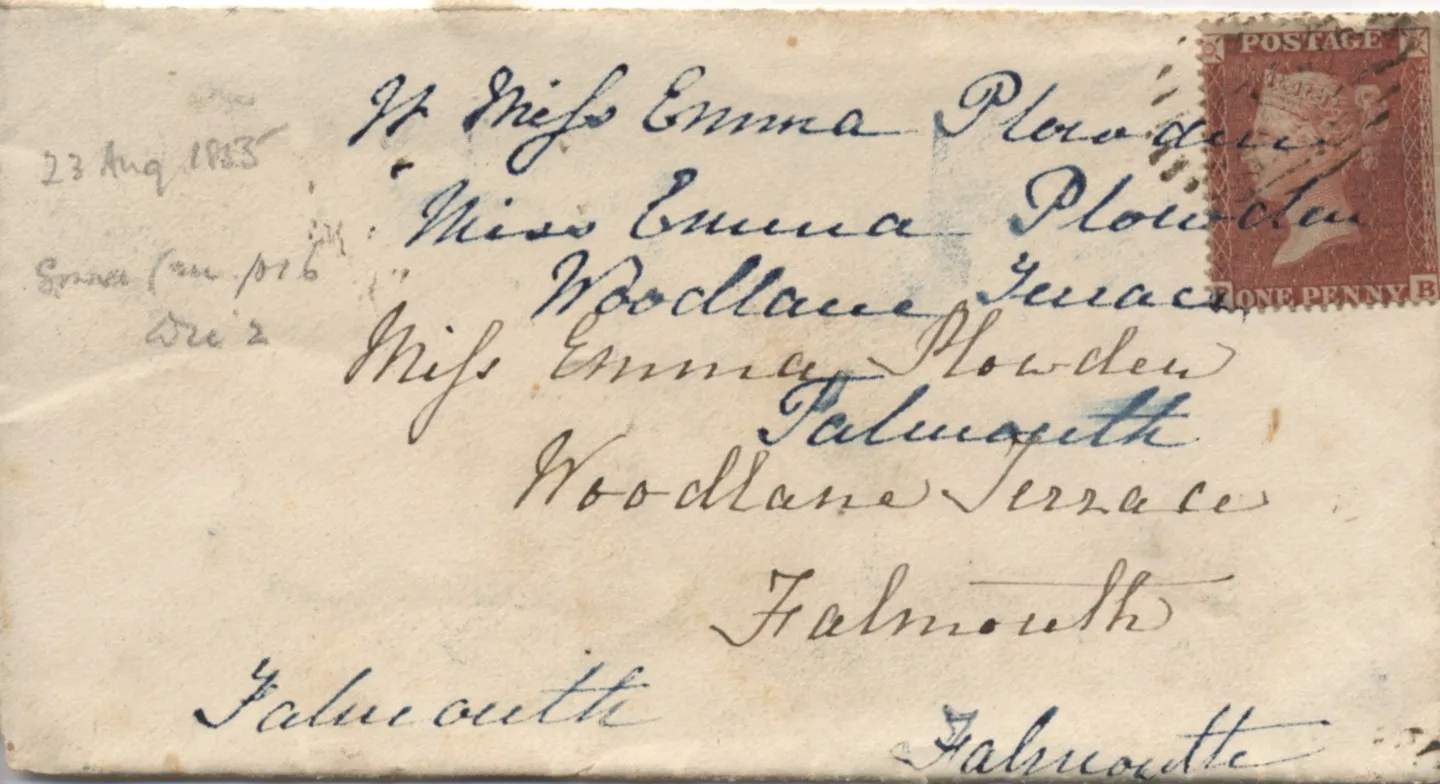 POSTAGE
Miss Emma Plowden
23 Aug 1855
Miss Emma Plowden
Woodlane Terrace
ONE PENNY B
Miss Emma Plowden
Falmouth
Woodlane Terrace
Falmouth
Falmouth
Falmouth